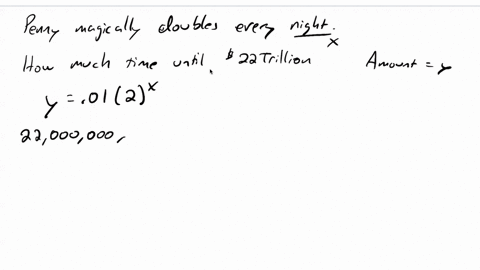 Penny magically doubles every night.
x
How much time until $22 Trillion Amount = y
y = .01(2)^x
22,000,000,